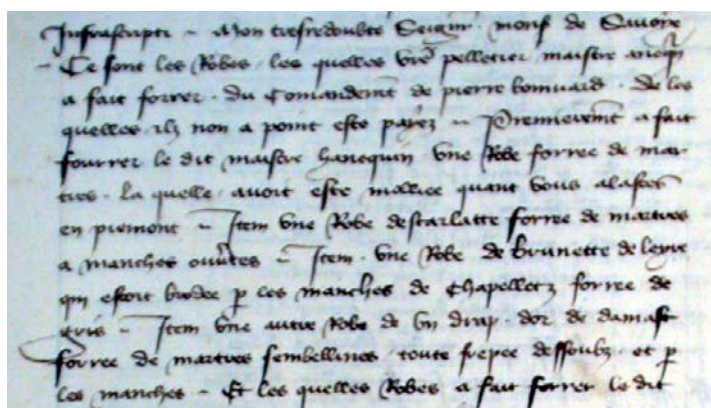 Infrascripti ~ Mon tresredoubte Seignr monsr de Savoye
~ Ce sont les Robes . les quelles vre pelletier maistre aneqn
a fait forrer . du Comandemt de pierre bonivard . de les
quelles ilz non a point este payez ~ Premieremt a fait
fourrer le dit maistre hanequin vne Robe forree de mar
tres . la quelle . avoit este quant vous alastes
en piemont ~ Item vne Robe descarlatte forree de martres
a manches ouvtes ~ Item . vne Robe de brunette de
qui estoit brodee p les manches de Chapelletz forree de
gris ~ Item vne autre Robe de vn drap . dor de damast
forree de martres sembellines . toute frepee dessoubz . et p
les manches ~ Et les quelles Robes a fait forrer le dit